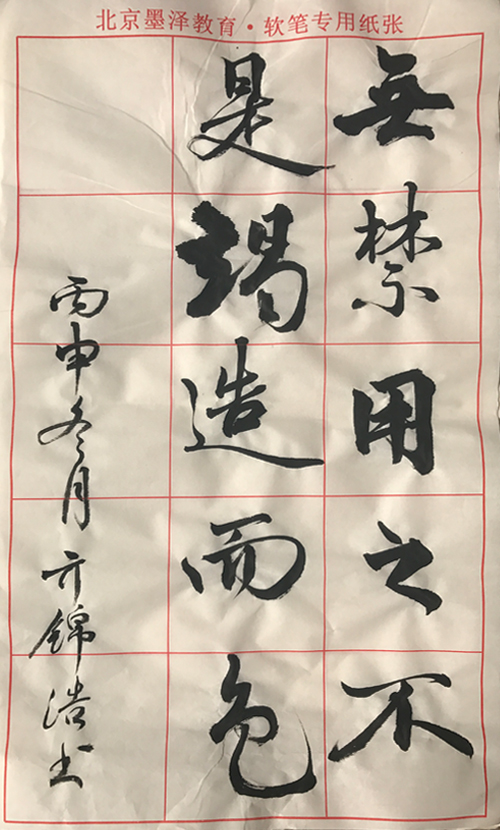 北京墨泽教育·软笔专用纸张
無禁用之不
是竭造而色
丙申冬月亓錦浩书